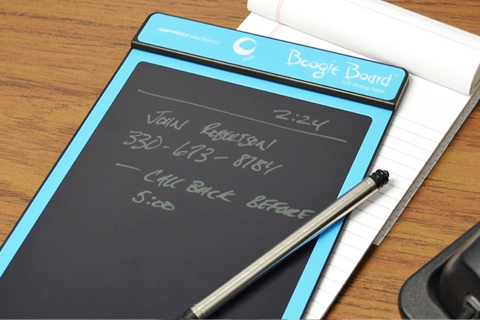 Boogie Board
LCD Writing Tablet
2:24
JOHN ROBERTSON
330-673-8784
— CALL BACK BEFORE
5:00